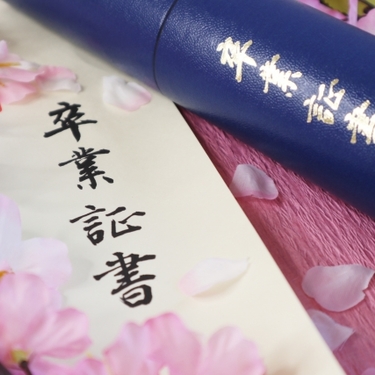 卒業証書
卒業証書